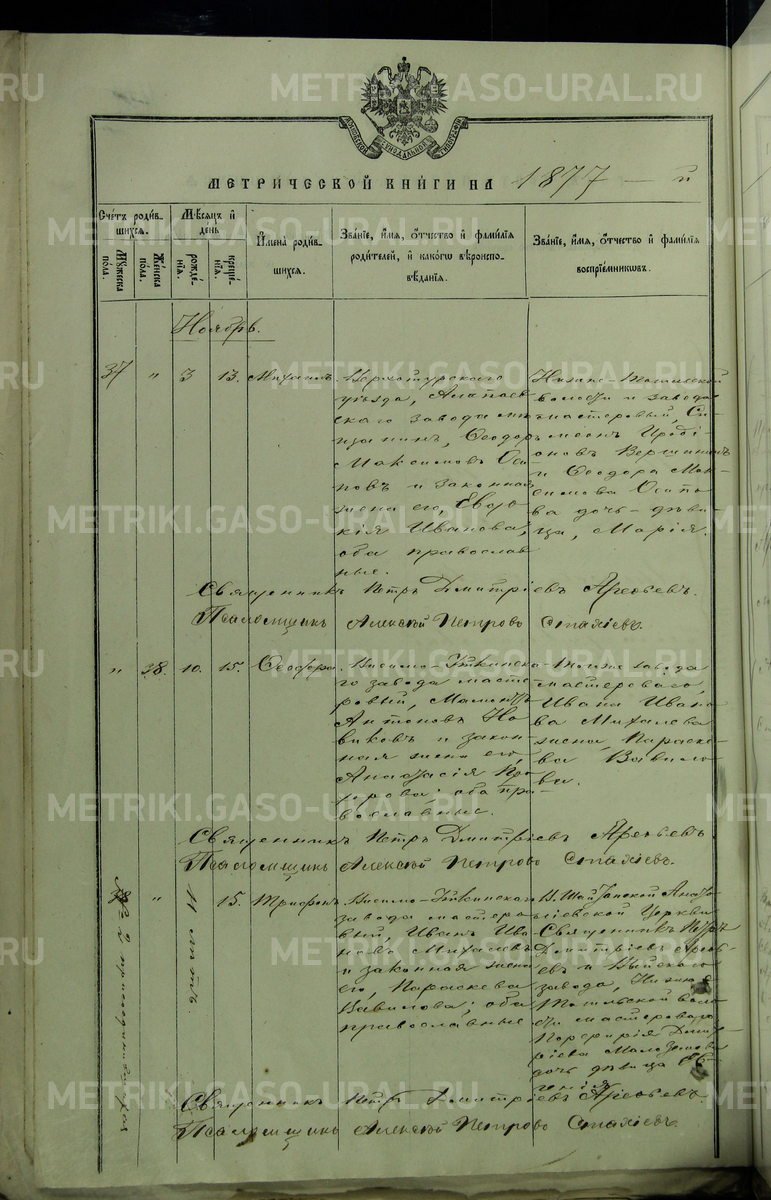 METRIKI.GASO-URAL.RU
МОСКОВСКОЙ СѴНОДАЛЬНОЙ ТИПОГРАФІИ
МЕТРИЧЕСКОЙ КНИГИ НА 1877 — й
Счетъ родившихся.
Мужеска пола.
Женска пола.
Мѣсяцъ и день
рожденія.
крещенія.
Имена родившихся.
Званіе, имя, отчество и фамилія родителей, и какогѡ вѣроисповѣданія.
Званіе, имя, отчество и фамилія воспріемникѡвъ.
Ноябрь.
37 " 3 13. Михаилъ.
Верхотурскаго
уѣзда, Алапаев
скаго завода мѣ
щанинъ, Ѳеодоръ
Максимовъ Оси
повъ и законная
жена его, Евдо
кія Иванова,
оба православ
ные.
Нижне-Тагильской
волости и завода
мастеровый, Си
меонъ Иродi
оновъ Вершининъ
и Ѳеодора Мак
симова Осипо
ва дочь-дѣви
ца, Марія.
Священникъ Петръ Димитріевъ Арефьевъ.
Псаломщикъ Алексѣй Петровъ Стахіевъ.
" 38. 10. 15.
Висимо-Уткинска
го завода масте
ровый,
Антоновъ Но
виковъ и закон
ная жена его,
Анастасія
оба пра
вославные.
Тогоже завода
мастероваго,
Ивана Ивано
ва Михалева
жена, Параске
ва Вавило
ва.
Священникъ Петръ Димитріевъ Арефьевъ.
Псаломщикъ Алексѣй Петровъ Стахіевъ.
38 " 11 15. Трифонъ.
Висимо-Уткинскаго
завода мастеро
вый, Иванъ Ива
новъ Михалевъ
и законная жена
его, Параскева
Вавилова; оба
православные
В. Шайтанской Анато
ліевской Церкви
Священникъ Петръ
Димитріевъ Арефь
евъ и Выйскаго
завода, Нижне-
Тагильской воло
сти мастероваго
Порфирія Дмит
ріева Малоземова
дочь дѣвица Ев
генія.
Священникъ Петръ Димитріевъ Арефьевъ.
Псаломщикъ Алексѣй Петровъ Стахіевъ.